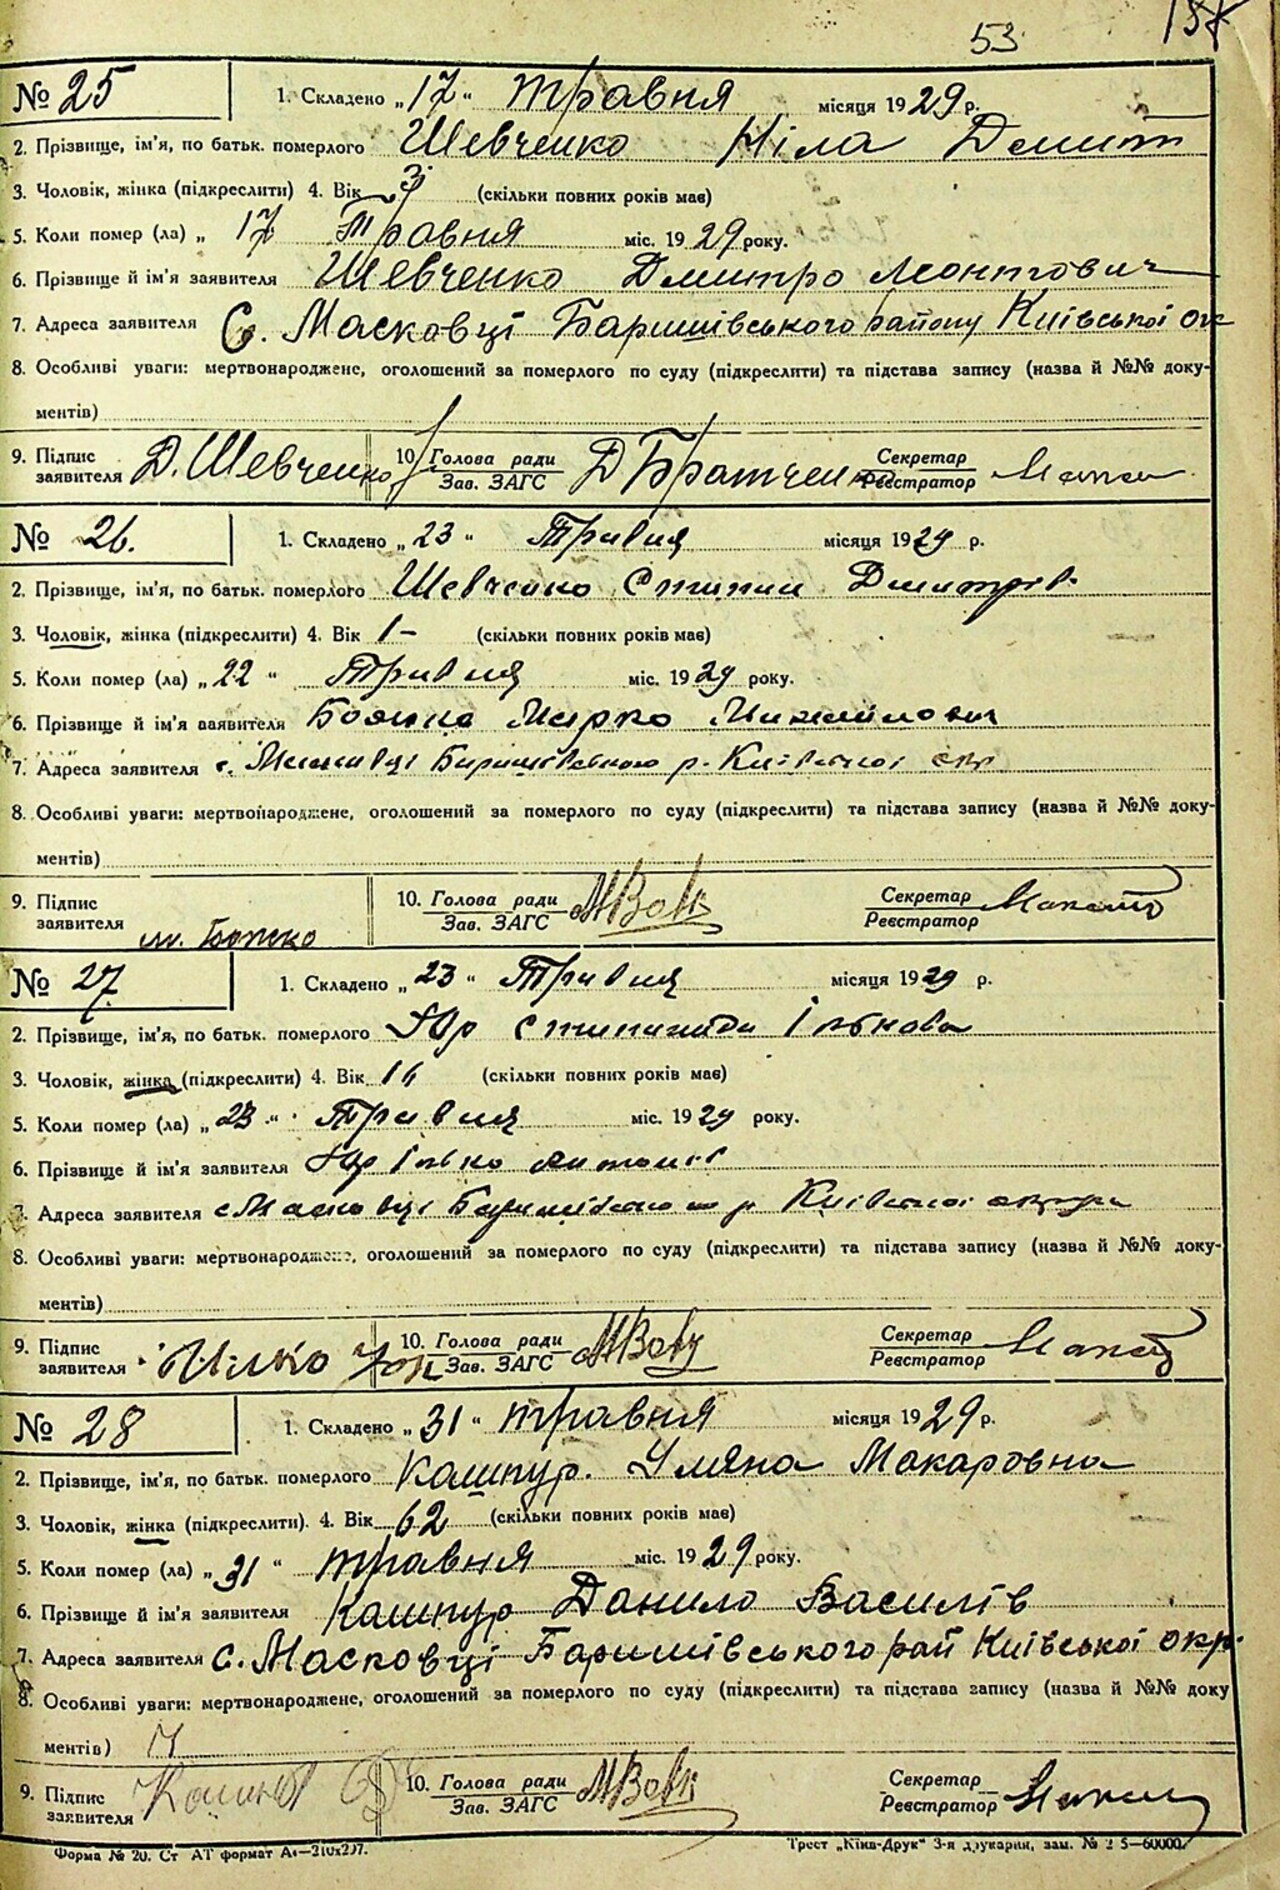 53
№ 25 1. Складено „17“ травня місяця 1929 р.
2. Прізвище, ім'я, по батьк. померлого Шевченко Ніла Дмит
3. Чоловік, жінка (підкреслити) 4. Вік 3 (скільки повних років має)
5. Коли помер (ла) „ 17 Травня міс. 1929 року.
6. Прізвище й ім'я заявителя Шевченко Дмитро Леонтович
7. Адреса заявителя С. Масковці Баришівського району Київської ок
8. Особливі уваги: мертвонароджене, оголошений за померлого по суду (підкреслити) та підстава запису (назва й №№ доку-
ментів)
9. Підпис заявителя Д. Шевченко 10. Голова ради Зав. ЗАГС Д Братченко Секретар Реєстратор
№ 26. 1. Складено „23“ Травня місяця 1929 р.
2. Прізвище, ім'я, по батьк. померлого Шевченко Степан Дмитрів.
3. Чоловік, жінка (підкреслити) 4. Вік 1– (скільки повних років має)
5. Коли помер (ла) „22“ Травня міс. 1929 року.
6. Прізвище й ім'я заявителя Марко Михайлович
7. Адреса заявителя с. Масковці Баришівського р. Київської окр
8. Особливі уваги: мертвонароджене, оголошений за померлого по суду (підкреслити) та підстава запису (назва й №№ доку-
ментів)
9. Підпис заявителя м. 10. Голова ради Зав. ЗАГС МВовк Секретар Реєстратор
№ 27 1. Складено „23“ Травня місяця 1929 р.
2. Прізвище, ім'я, по батьк. померлого Степанида Ількова
3. Чоловік, жінка (підкреслити) 4. Вік (скільки повних років має)
5. Коли помер (ла) „23“ Травня міс. 1929 року.
6. Прізвище й ім'я заявителя Ілько
7. Адреса заявителя с Масковці Баришівського р Київської округи
8. Особливі уваги: мертвонароджене, оголошений за померлого по суду (підкреслити) та підстава запису (назва й №№ доку-
ментів)
9. Підпис заявителя Илько 10. Голова ради Зав. ЗАГС МВовк Секретар Реєстратор
№ 28 1. Складено „31“ травня місяця 1929 р.
2. Прізвище, ім'я, по батьк. померлого Кашпур. Уляна Макаровна
3. Чоловік, жінка (підкреслити). 4. Вік 62 (скільки повних років має)
5. Коли помер (ла) „31“ травня міс. 1929 року.
6. Прізвище й ім'я заявителя Кашпур Данило Василів
7. Адреса заявителя с. Масковці Баришівського рай Київської окр.
8. Особливі уваги: мертвонароджене, оголошений за померлого по суду (підкреслити) та підстава запису (назва й №№ доку
ментів)
9. Підпис заявителя 10. Голова ради Зав. ЗАГС МВовк Секретар Реєстратор
Форма № 20. Ст АТ формат А4—210х297. Трест „Київ-Друк“ 3-я друкарня, зам. №